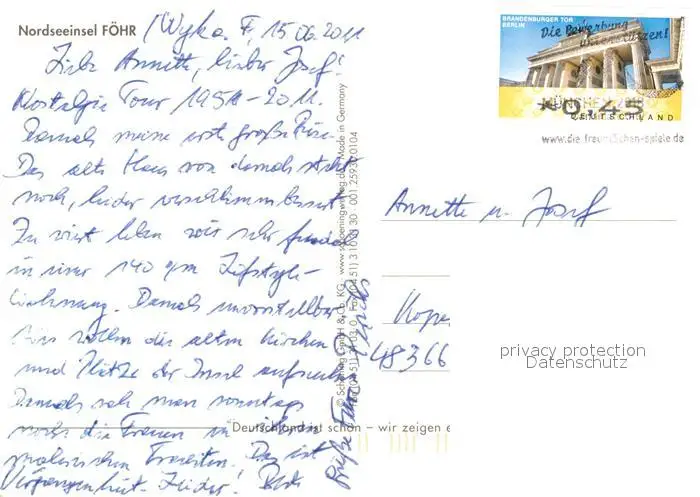 Nordseeinsel FÖHR
Wyk a. F, 15.06.2011
Liebe Annette, lieber Josef!
Nostalgie Tour 1951-2011.
Damals meine erste große Reise.
Das alte Haus von damals steht
noch, leider verschlimmbessert
Zu viert leben wir sehr
in einer 140 qm Lifestyle-
Wohnung. Damals unvorstellbar
Wir wollen die alten Kirchen
und Plätze der Insel aufsuchen
Damals sah man sonntags
noch die Frauen in
malerischen Trachten. Das ist
Vergangenheit. Leider!
© Schöning GmbH & Co. KG
www.schoening-verlag.de
Made in Germany
BRANDENBURGER TOR
BERLIN
Die Bewerbung
unterstützen!
MÜNCHEN 2018
0,45
DEUTSCHLAND
www.die-freundlichen-spiele.de
Annette u. Josef
48366
privacy protection
Datenschutz
Deutschland ist schön – wir zeigen e